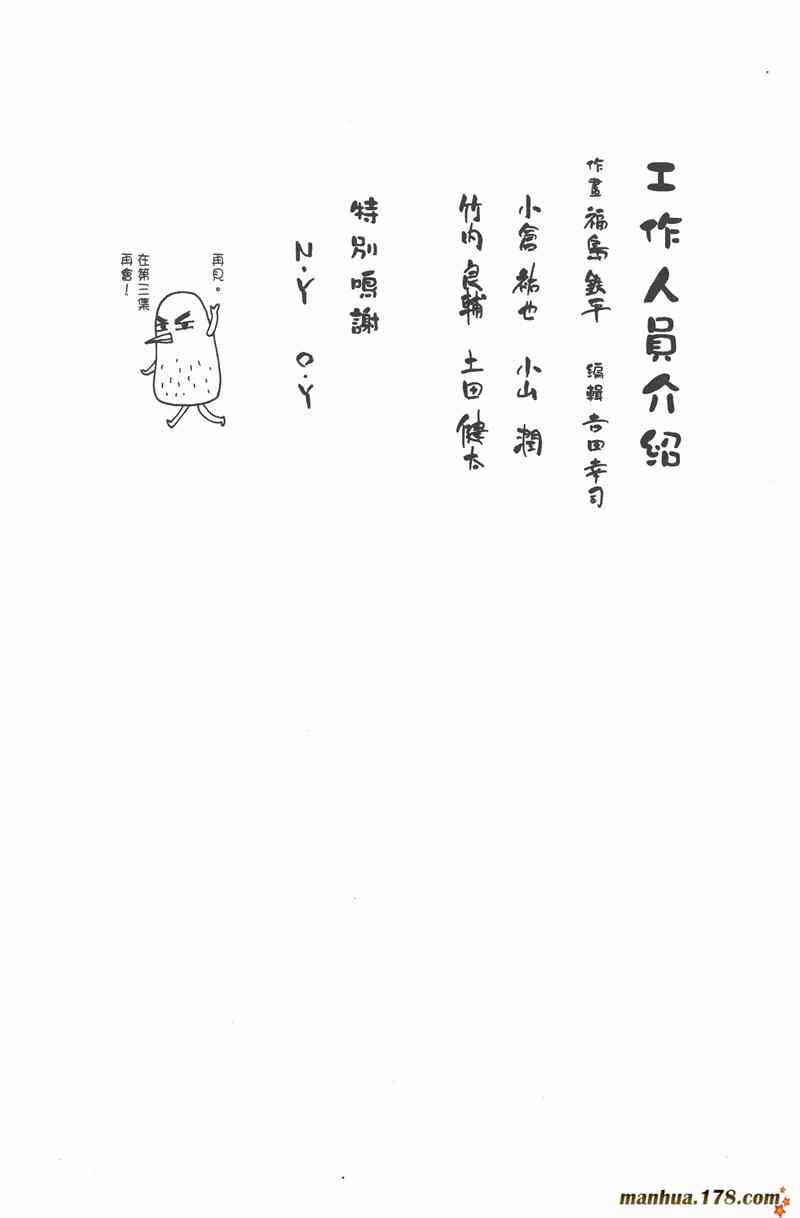 工作人員介紹
作畫 福島鉄平 編輯 吉田幸司
小倉祐也 小山潤
竹内良輔 土田健太
特別鳴謝
N.Y O.Y
再見。
在第三集
再會！
manhua.178.com